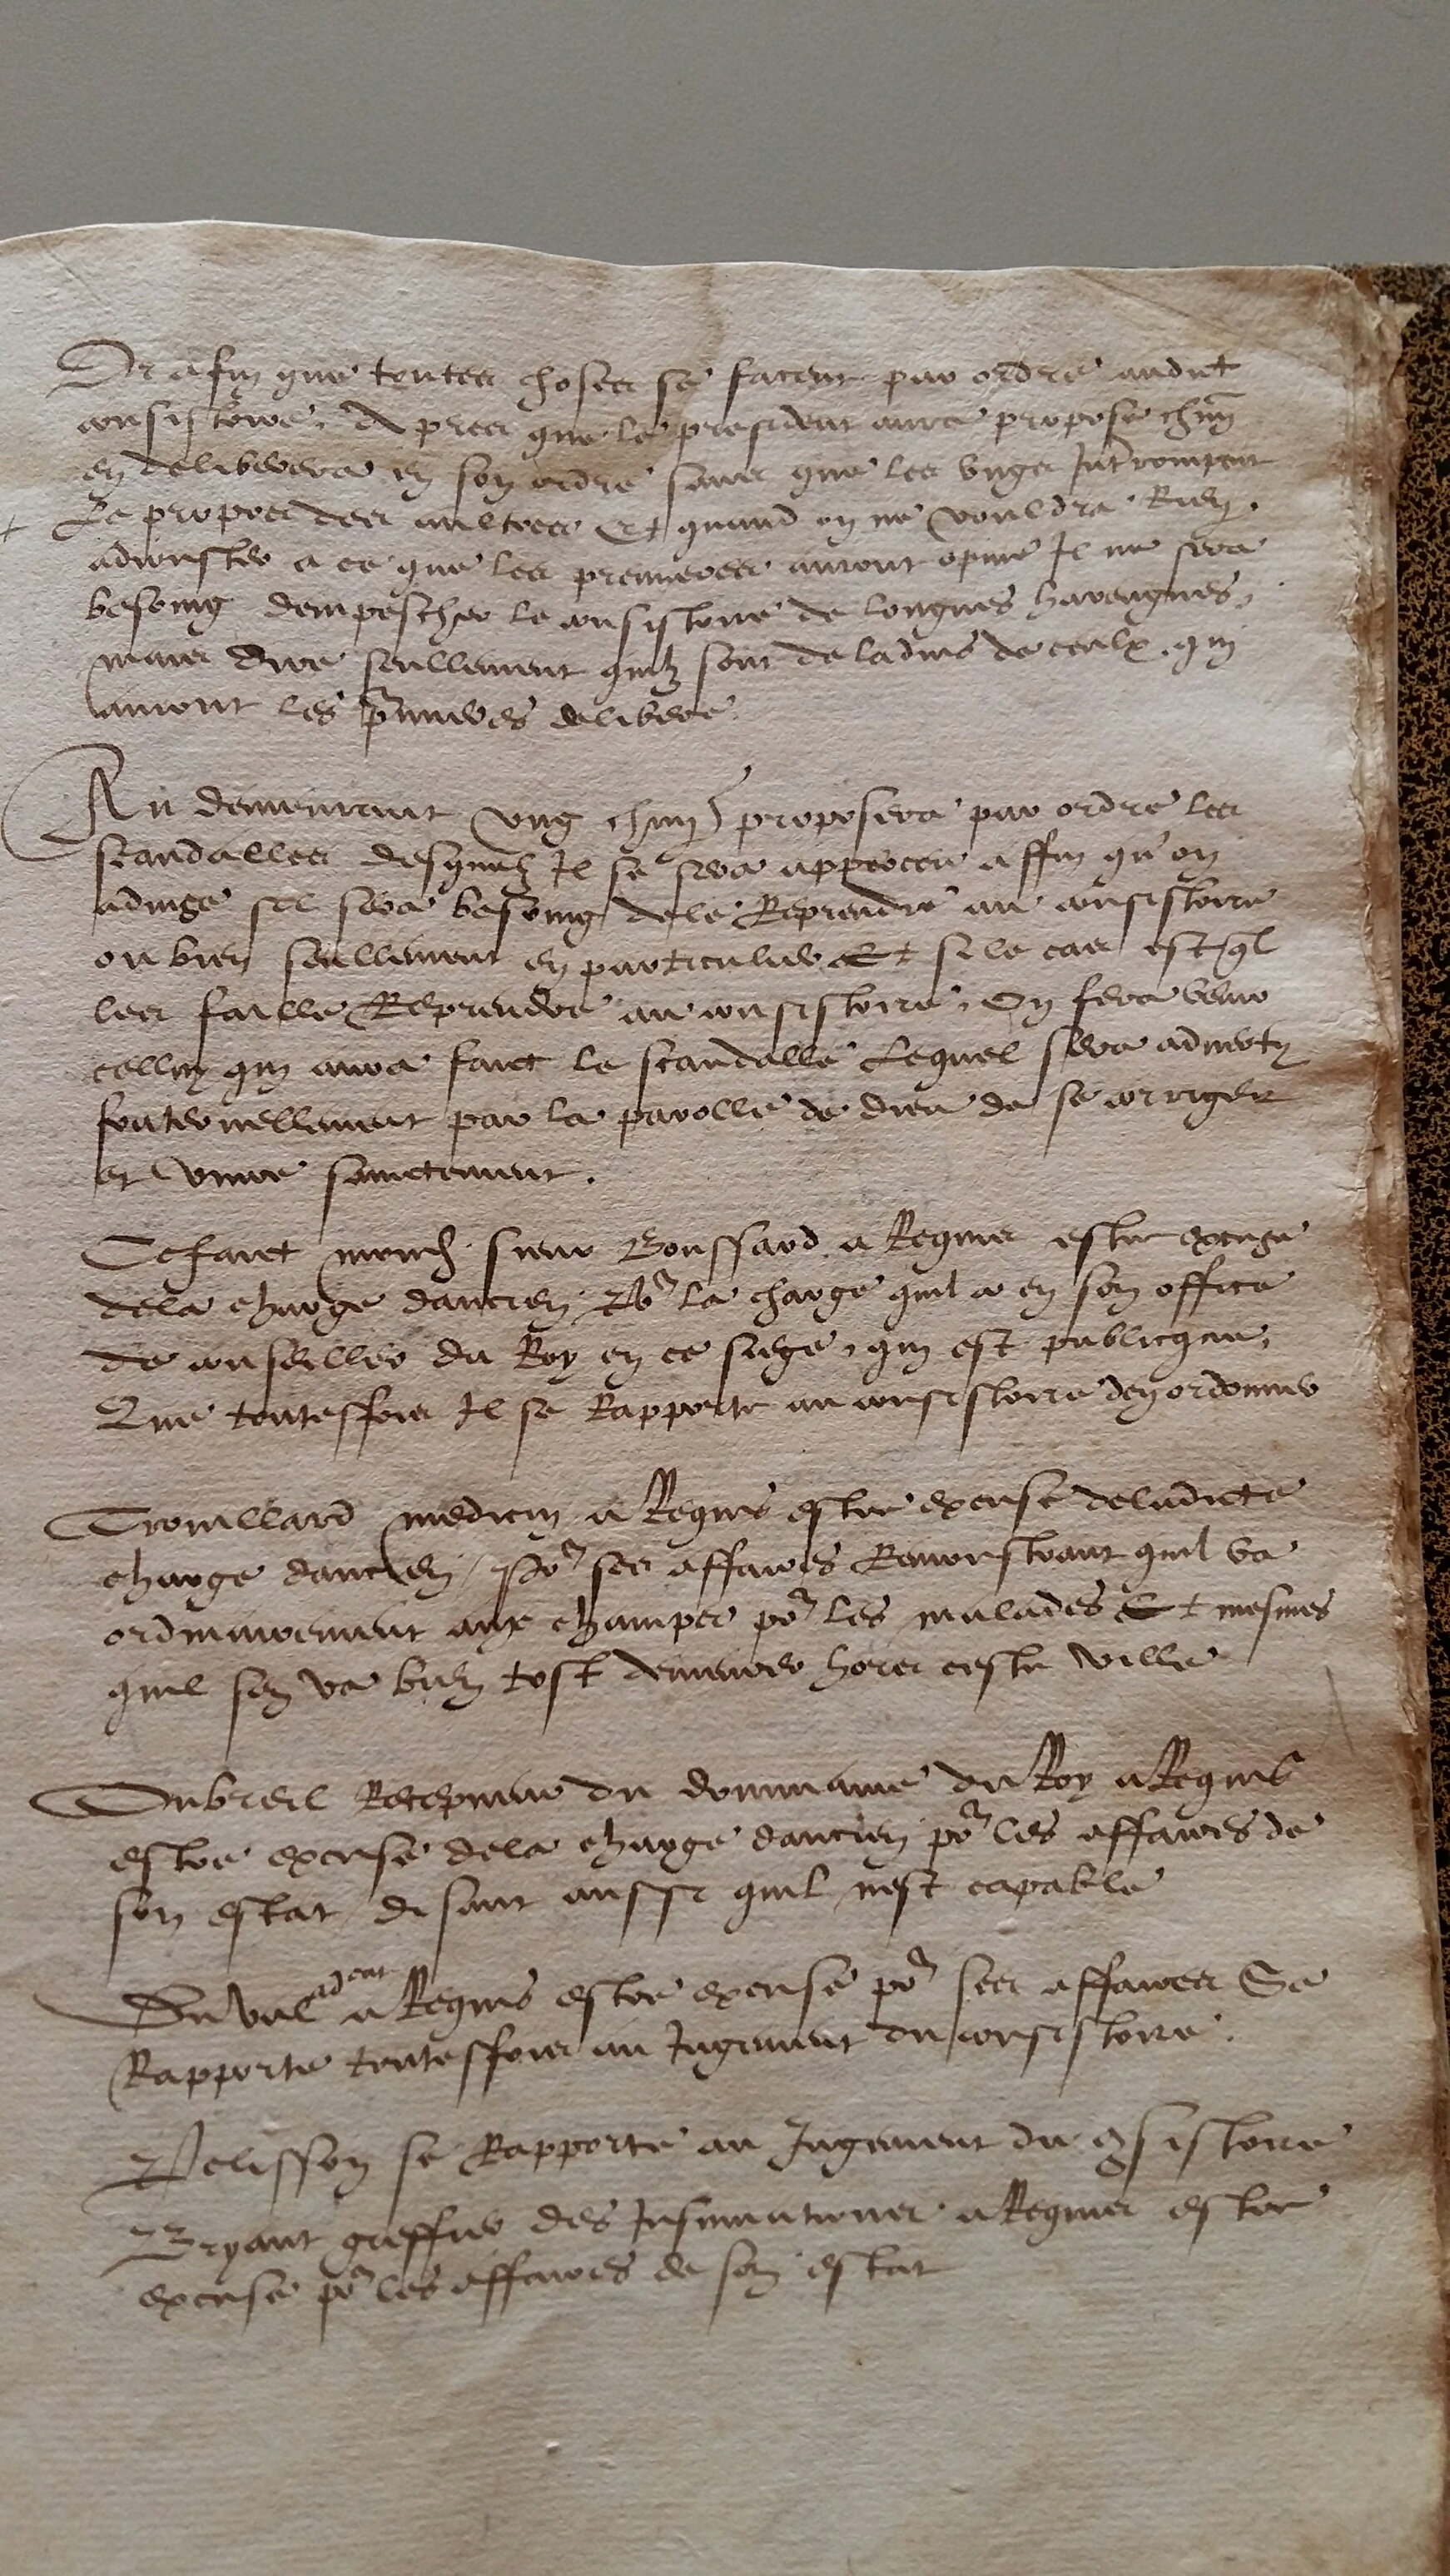 Et afin que toutes choses se facent par ordre audict
consistoire. Apres que le president aura propose chũn
en deliberera en son ordre sans que les ungs Intrompent
Le propos des aultres Et quand on ne vouldra Rien
adiouster a ce que les premieres auront opine Il ne sera
besoing dempescher le consistoire de longues harengues,
mais dire seullement quilz sont de ladvis de ceulx qui
auront les p̃miers delibere
Au demeurant ung chũn proposera par ordre les
scandalles desquelz Il se sera apperceu affin qu'on
aduige sil sera besoing de le Reprendre au consistoire
ou bien seullement en particulier Et si le cas est ql
les faille Reprendre au consistoire, On fera venir
celluy qui aura faict le scandalle Lequel sera adverty
fraternellement par la parolle de dieu de se corriger
et vivre sainctement.
Ce faict sieur Boussard a Requis estre excuse
de la charge dancien po^r la charge quil a en son office
de conseiller du Roy en ce siege, qui est publicque,
Que touteffois Il se Rapporte au consistoire den ordonner
Trouillard medicin a Requis estre excuse de ladicte
charge dancien po^r ses affaires Remonstrant quil va
ordinairement aux champs po^r les malades Et mesmes
quil sen va bien tost demeurer hors ceste ville
Dubreil Recepveur du dommaine du Roy a Requis
estre excuse de la charge dancien po^r les affaires de
son estat disant aussi quil nest capable
Duval adcat a Requis estre excuse po^r ses affaires Se
Rapporte toutesfois au Jugement du consistoire.
Pelisson se Rapporte au Jugement du ꝯsistoire
Bryant greffier des Insinuations a Requis estre
excuse po^r les affaires de son estat